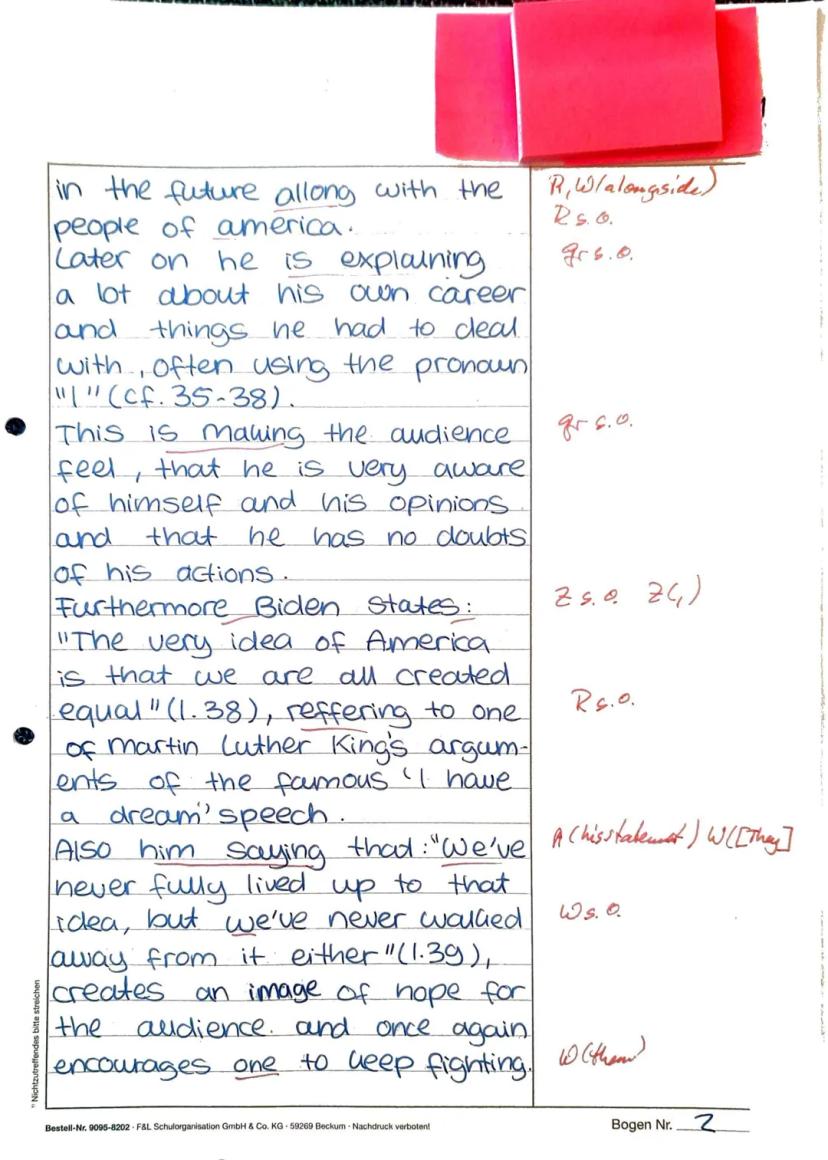 in the future allong with the
R, W(alongside)
people of america.
R s.o.
Later on he is explaining
gr s.o.
a lot about his own career
and things he had to deal
with, often using the pronoun
"I" (cf. 35-38).
This is making the audience
gr s.o.
feel, that he is very aware
of himself and his opinions
and that he has no doubts
of his actions.
Furthermore Biden states:
Z s.o. Z(,)
"The very idea of America
is that we are all created
equal" (l. 38), reffering to one
R s.o.
of martin Luther King's argum-
ents of the famous 'I have
a dream' speech.
Also him saying thad: "We've
A (his statement) W([They]
never fully lived up to that
idea, but we've never walked
W s.o.
away from it either" (l. 39),
creates an image of hope for
the audience and once again
encourages one to keep fighting.
W(them)
*) Nichtzutreffendes bitte streichen
Bestell-Nr. 9095-8202 · F&L Schulorganisation GmbH & Co. KG · 59269 Beckum · Nachdruck verboten!
Bogen Nr. 2